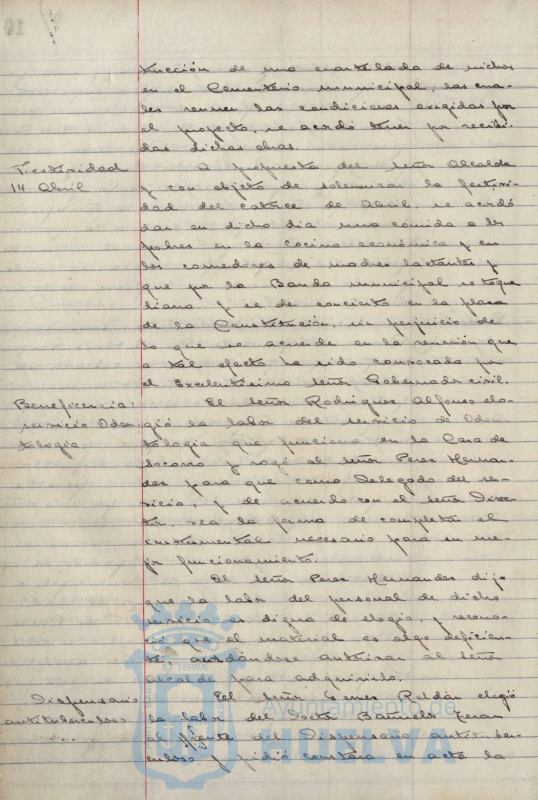 trucción de una cuartelada de nichos
en el Cementerio municipal, las cua-
les reunen las condiciones exigidas por
el proyecto, se acordó tener por recibi-
das dichas obras.
Festividad
14 Abril
A propuesta del señor Alcalde
y con objeto de solemnizar la festivi-
dad del catorce de Abril, se acordó
dar en dicho dia una comida a los
pobres en la cocina económica y en
los comedores de madres lactantes y
que por la Banda municipal se toque
diana y se de concierto en la plaza
de la Constitución, sin perjuicio de
lo que se acuerde en la reunión que
a tal efecto ha sido convocada por
el Excelentísimo señor Gobernador civil.
Beneficencia:
servicio Odon
tologia
El señor Rodriguez Alfonso elo-
gió la labor del servicio de Odon-
tologia que funciona en la Casa de
Socorro y rogó al señor Perez Hernan-
dez para que como Delegado del ser-
vicio, y de acuerdo con el señor Direc-
tor, vea la forma de completar el
instrumental necesario para su me-
jor funcionamiento.
El señor Perez Hernandez dijo
que la labor del personal de dicho
servicio es digna de elogio, y recono-
ció que el material es algo deficien-
te, acordándose autorizar al señor
Alcalde para adquirirlo.
Dispensario
antituberculoso
El señor Gomez Roldán elogió
la labor del Doctor Bañuelo Teran
al frente del Dispensario antituber-
culoso y pidió constara en acta la
Ayuntamiento de
HUELVA